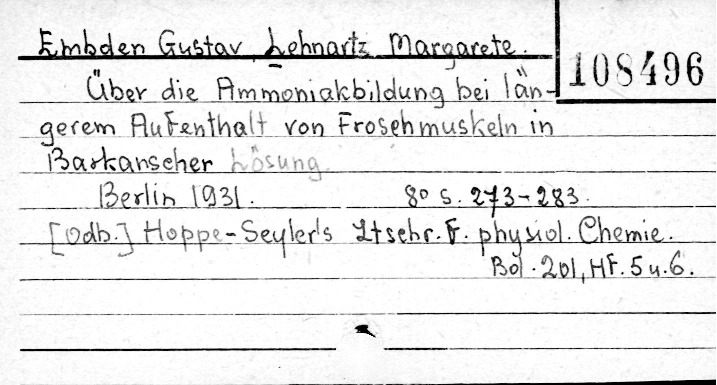 Embden Gustav, Lehnartz Margarete.
108496
Über die Ammoniakbildung bei län-
gerem Aufenthalt von Froschmuskeln in
Barkanscher Lösung.
Berlin 1931. 8° S. 273-283.
[Odb.] Hoppe-Seyler's Ztschr. f. physiol. Chemie.
Bd. 201, Hf. 5 u. 6.